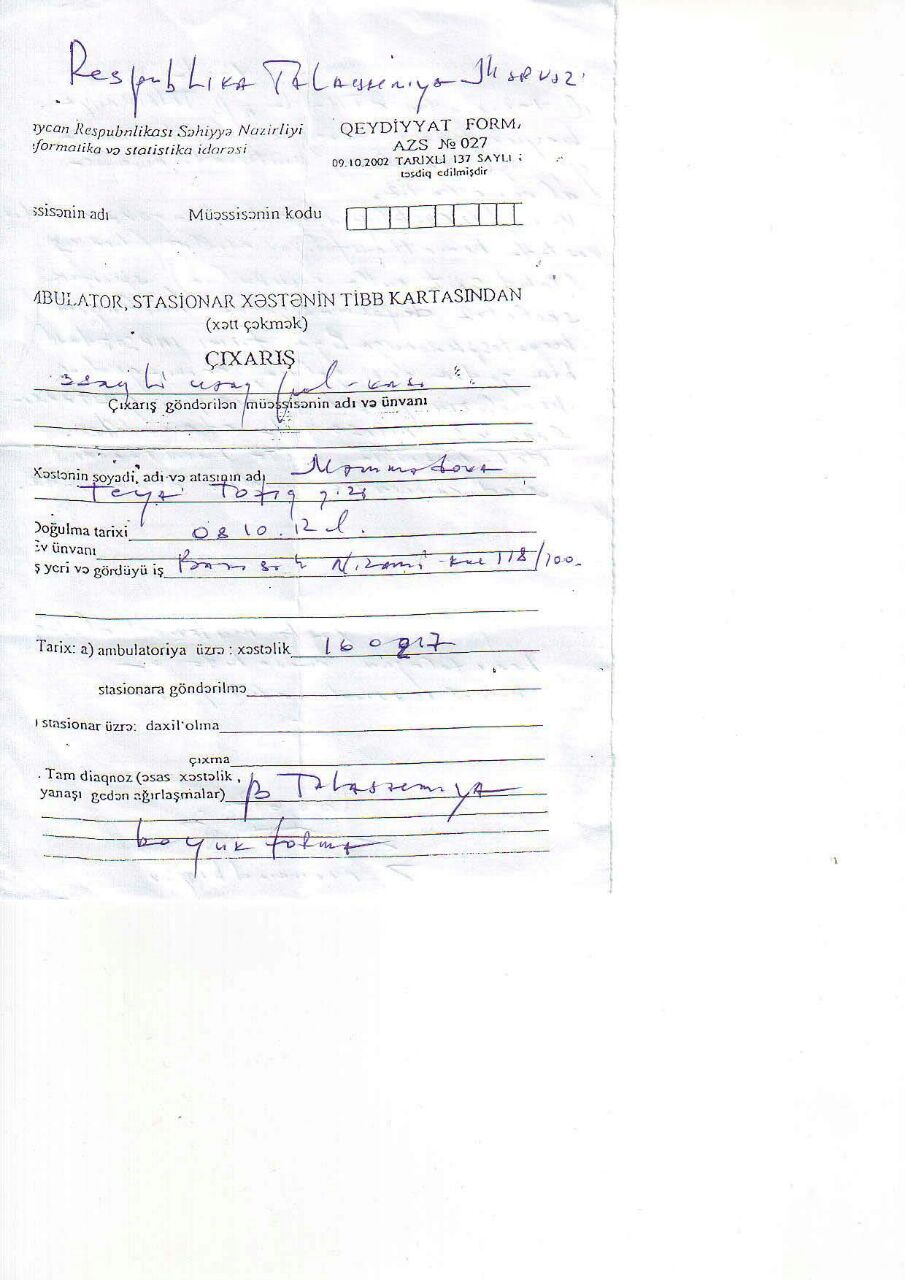 Respublika Talassemiya Mərkəzi
aycan Respubnlikası Səhiyyə Nazirliyi
formatika və statistika idarəsi
QEYDİYYAT FORMA
AZS № 027
09.10.2002 TARİXLİ 137 SAYLI
təsdiq edilmişdir
ssisənin adı Müəssisənin kodu
MBULATOR, STASİONAR XƏSTƏNİN TİBB KARTASINDAN
(xətt çəkmək)
ÇIXARIŞ
saylı uşaq pol-kası
Çıxarış göndərilən müəssisənin adı və ünvanı
Xəstənin soyadi, adı və atasının adı Məmmədova
Tofiq qızı
Doğulma tarixi 08 10. 12
Ev ünvanı
ş yeri və gördüyü iş Nizami küç 118/100.
Tarix: a) ambulatoriya üzrə : xəstəlik
stasionara göndərilmə
stasionar üzrə: daxil olma
çıxma
. Tam diaqnoz (əsas xəstəlik,
yanaşı gedən ağırlaşmalar) β Talassemiya
böyük forma